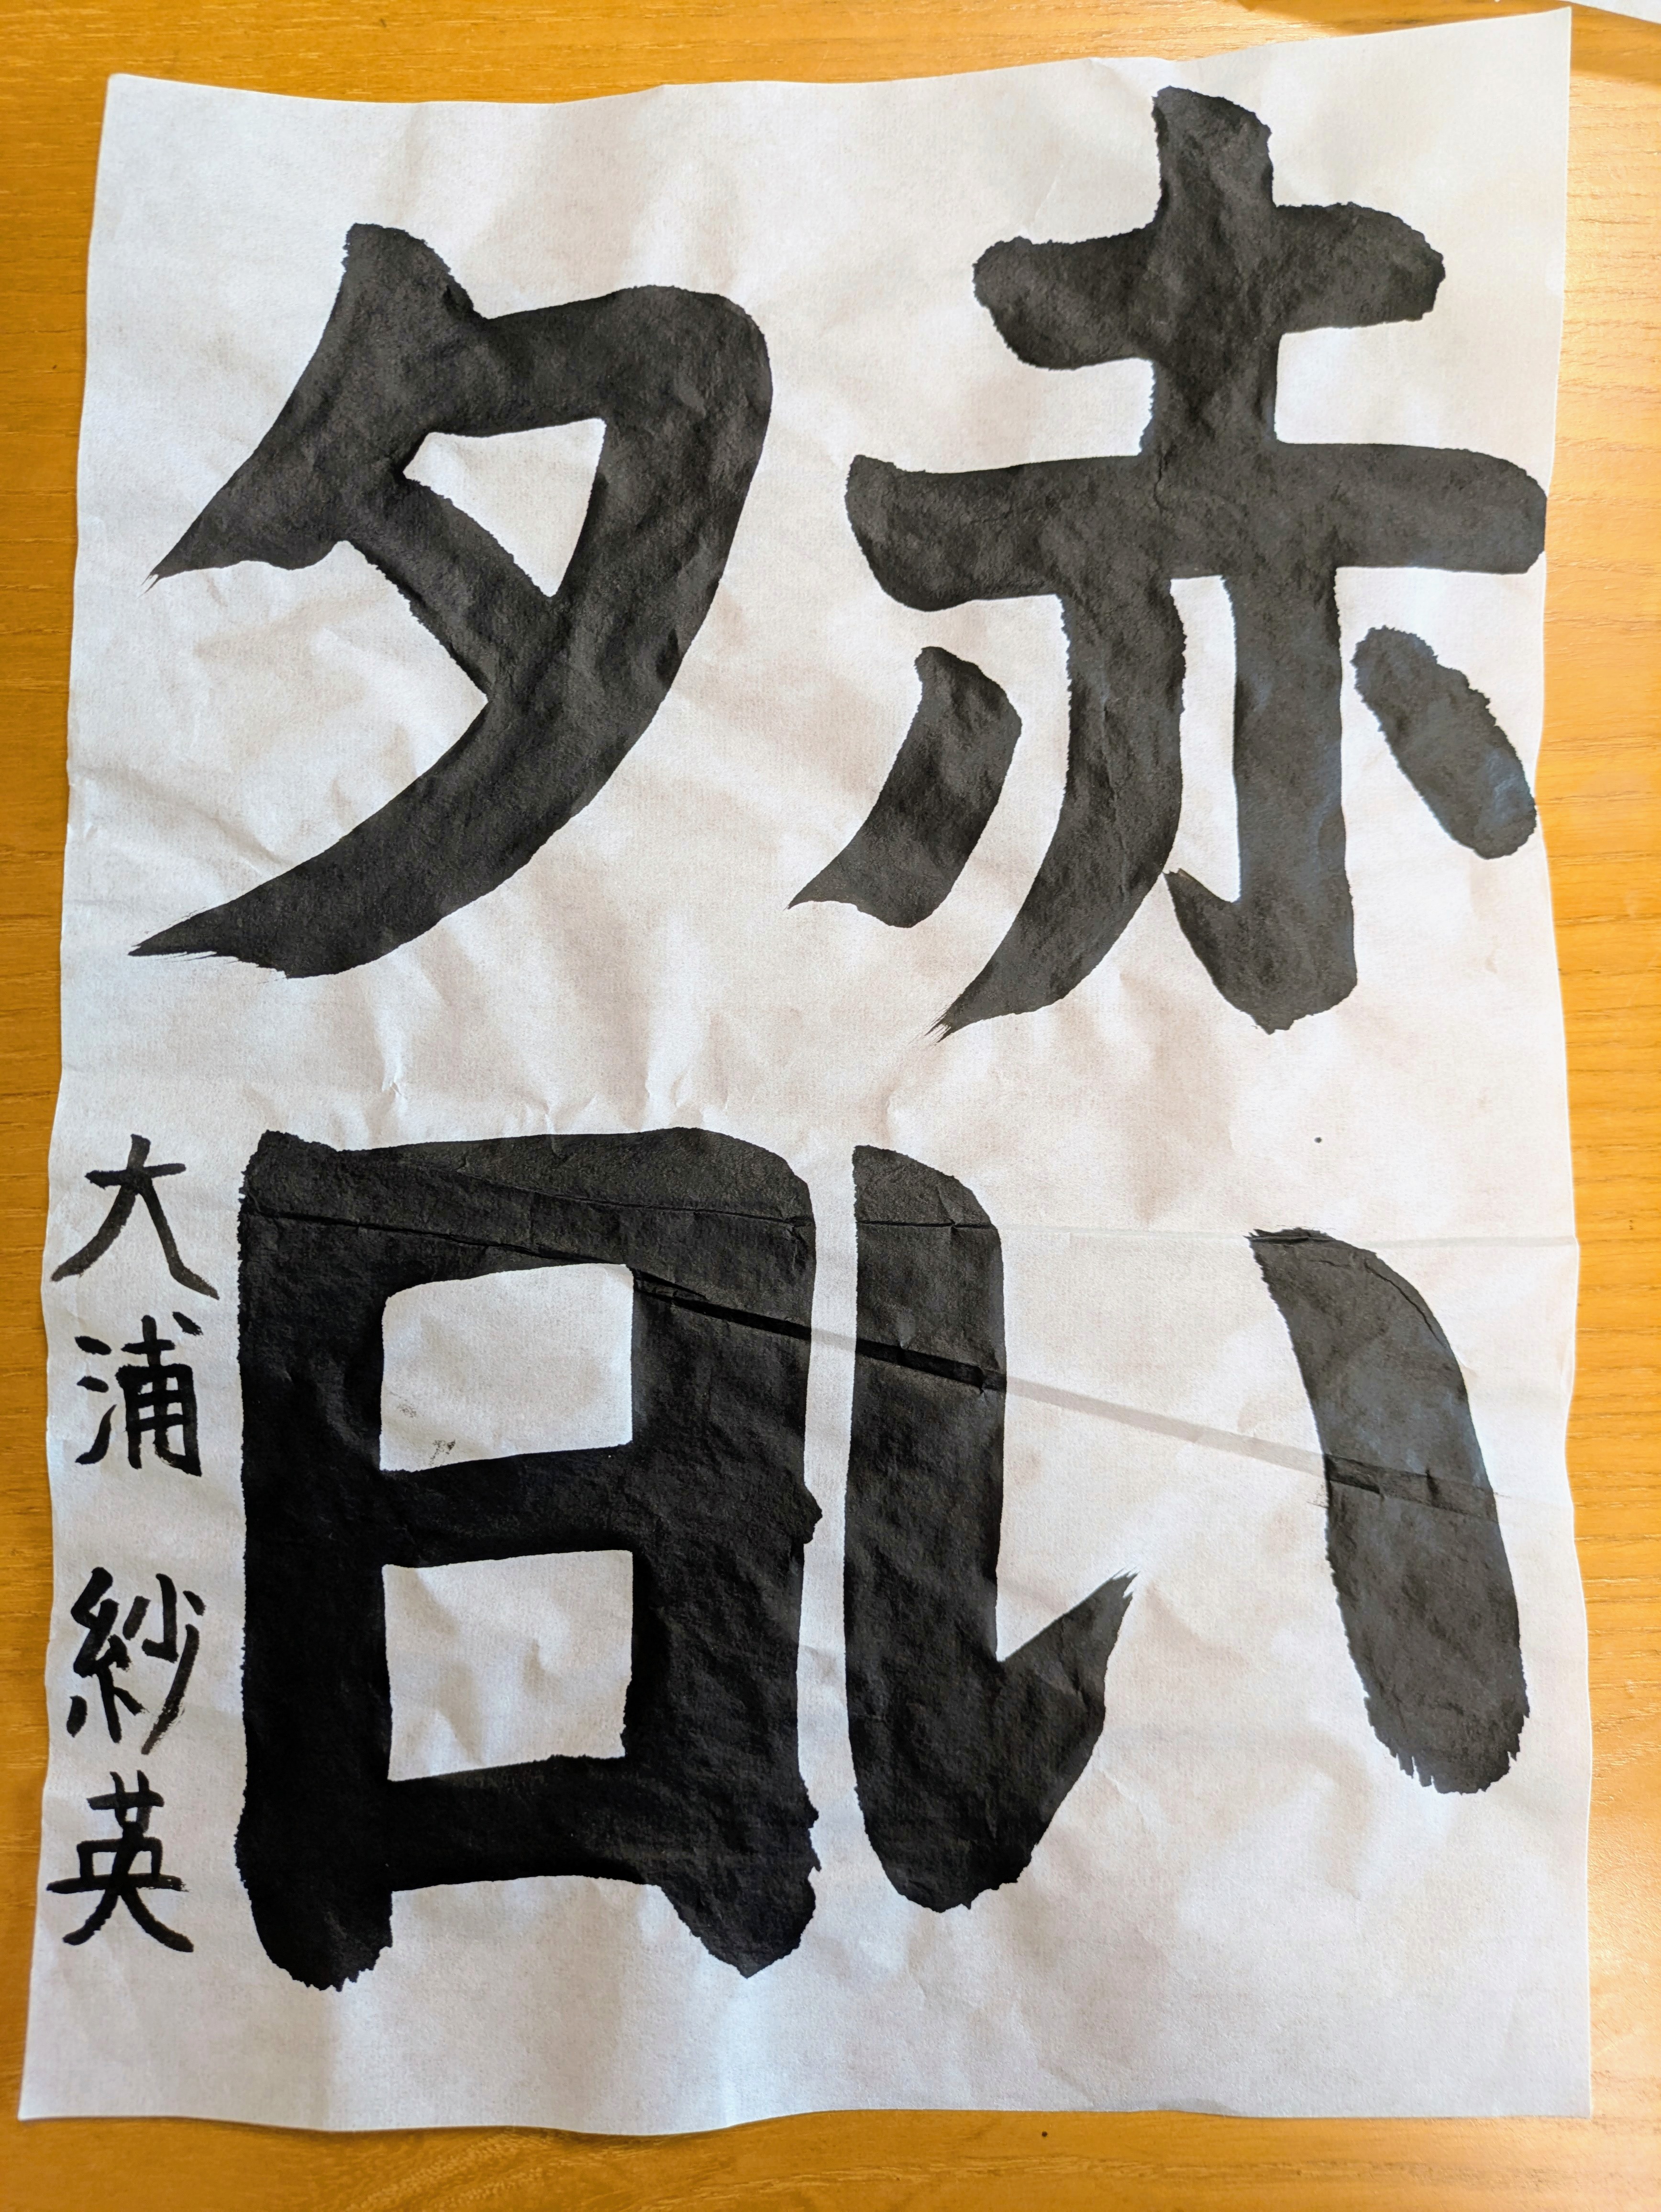 赤い
夕日
大浦 紗英